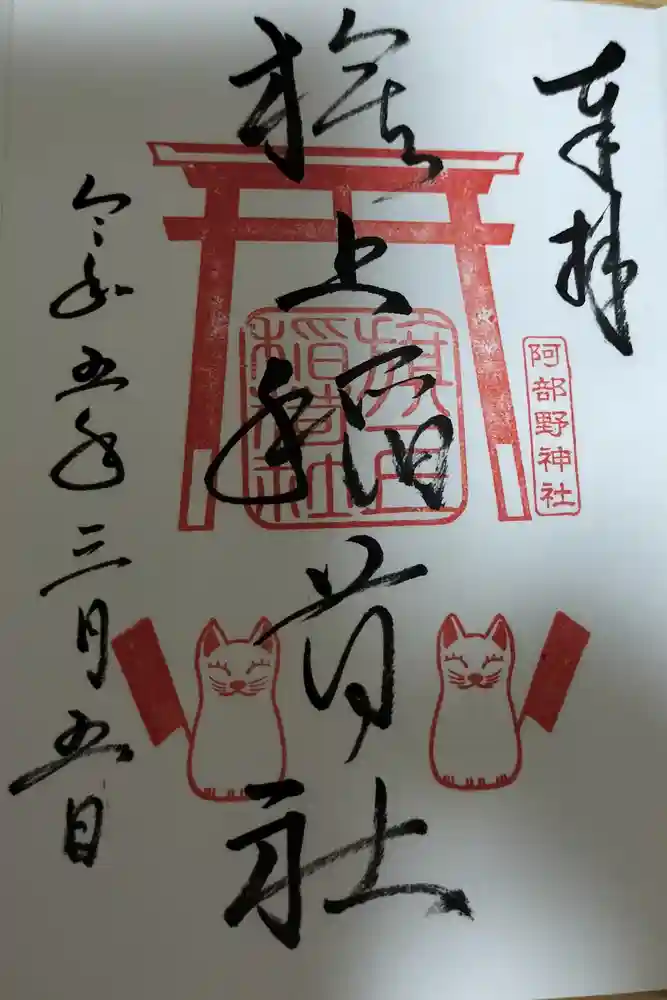 奉拝
阿部野神社
旗上稲荷社
旗上
稲荷社
令和五年三月五日